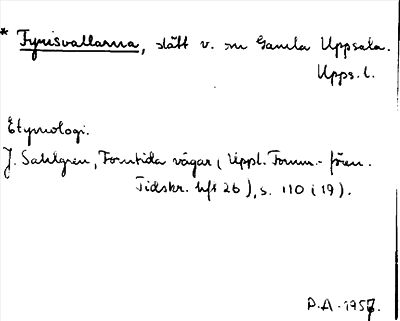 * Fyrisvallarna, slätt v. om Gamla Uppsala.
Upps. l.
Etymologi.
J. Sahlgren, Forntida vägar (Uppl. Fornm.-fören.
Tidskr. hft 26), s. 110 (19).
P.A. 1957.